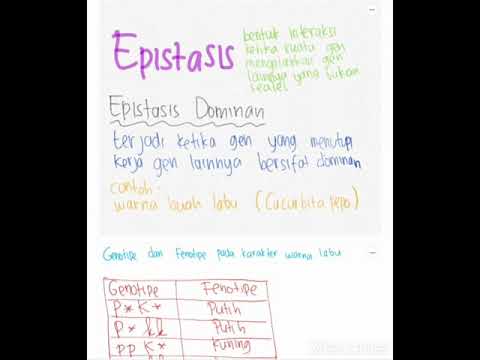 Epistasis
bentuk interaksi
ketika suatu gen
mengalahkan gen
lainnya yang bukan
sealel
Epistasis Dominan
terjadi ketika gen yang menutupi
kerja gen lainnya bersifat dominan
contoh:
warna buah labu (Cucurbita pepo)
Genotipe dan Fenotipe pada karakter warna labu
Genotipe Fenotipe
P* K* Putih
P* kk Putih
pp K* Kuning